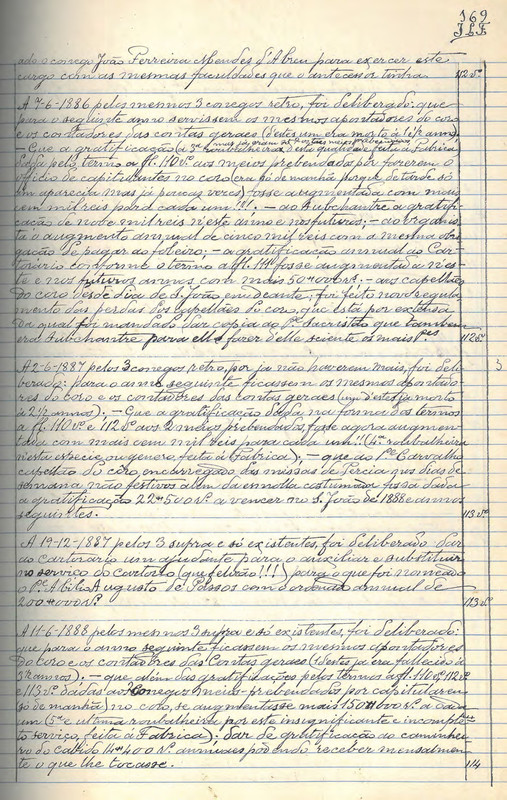 169
ado o conego João Ferreira Mendes d'Abreu para exercer este
cargo com as mesmas faculdades que o antecessor tinha.
112 vº
A 7-6-1886 pelos mesmos 3 conegos retro, foi deliberado: que
para o seguinte anno servissem os mesmos apontadores do coro
e os contadores das contas geraes (d'estes um era morto à 1 1/2 anno)
- Que a gratificação (a 3ª roubalheira) feita à Fabrica
dada pelo termo a fl. 110 vº aos meios prebendados por fazerem o
officio de capitulantes no coro (era só de manhã porque de tarde só
um aparecia mas já poucas vezes) fosse augmentada com mais
cem mil reis para cada um!!! - ao Subchantre a gratifi-
cação de nove mil reis n'este anno e nos futuros; - ao organis-
ta o augmento annual de cinco mil reis com a mesma obri-
gação de pagar ao foleiro; - a gratificação annual ao Car-
torario conforme o termo a fl. fosse augmentada n'es-
te e nos futuros annos com mais 50#000 rs. - aos capellães
do coro desde dia de S. João, em deante, foi feito novo regula-
mento das perdas dos capellães do coro, que está por extenso
do qual foi mandado dar copia ao Pe. Sacrista que tambem
era Subchantre para elle fazer d'elle sciente os mais Pes.
112 vº
A 2-6-1887 pelos 3 conegos retro, por já não haverem mais, foi deli-
berado: para o anno seguinte ficassem os mesmos apontado-
res do coro e os contadores das contas geraes (um d'estes já morto
à 2 1/2 annos). - Que a gratificação dada na forma dos termos
a fl. 110 vº e 112 vº aos 2 meios prebendados, fosse agora augmen-
tada com mais cem mil reis para cada um!! (4ª roubalheira
n'esta especie ou genero feita à Fabrica); - que ao Pe. Carvalho
capellão do coro, encarregado das missas de Tercia nos dias de
semana não festivos alem da esmolla costumada fosse dada
a gratificação 22#500 rs. a vencer no S. João de 1888 e annos
seguintes.
113 vº
A 19-12-1887 pelos 3 supra e só existentes, foi deliberado dar
ao cartorario um ajudante para o auxiliar e substituir
no serviço do cartorio (que !!!) para o que foi nomeado
o Pe. Abilio Augusto de Passos com o ordenado annual de
200#000 rs.
113 vº
A 11-6-1888 pelos mesmos 3 supra e só existentes, foi deliberado:
que para o anno seguinte ficassem os mesmos apontadores
do coro e os contadores das Contas geraes (1 d'estes já era fallecido à
3 annos). - que alem das gratificações pelos termos a fl. 110 vº 112 vº
e 113 vº dadas aos conegos meios-prebendados por capitularem
(só de manhã) no coro, se augmentasse mais 150#000 rs. a cada
um (5ª e ultima roubalheira por este insignificante e incomple-
to serviço, feita à Fabrica); dar de gratificação ao caminhei-
ro do cabido 14#400 rs. annuaes podendo receber mensalmen-
te o que lhe tocasse.
114
3